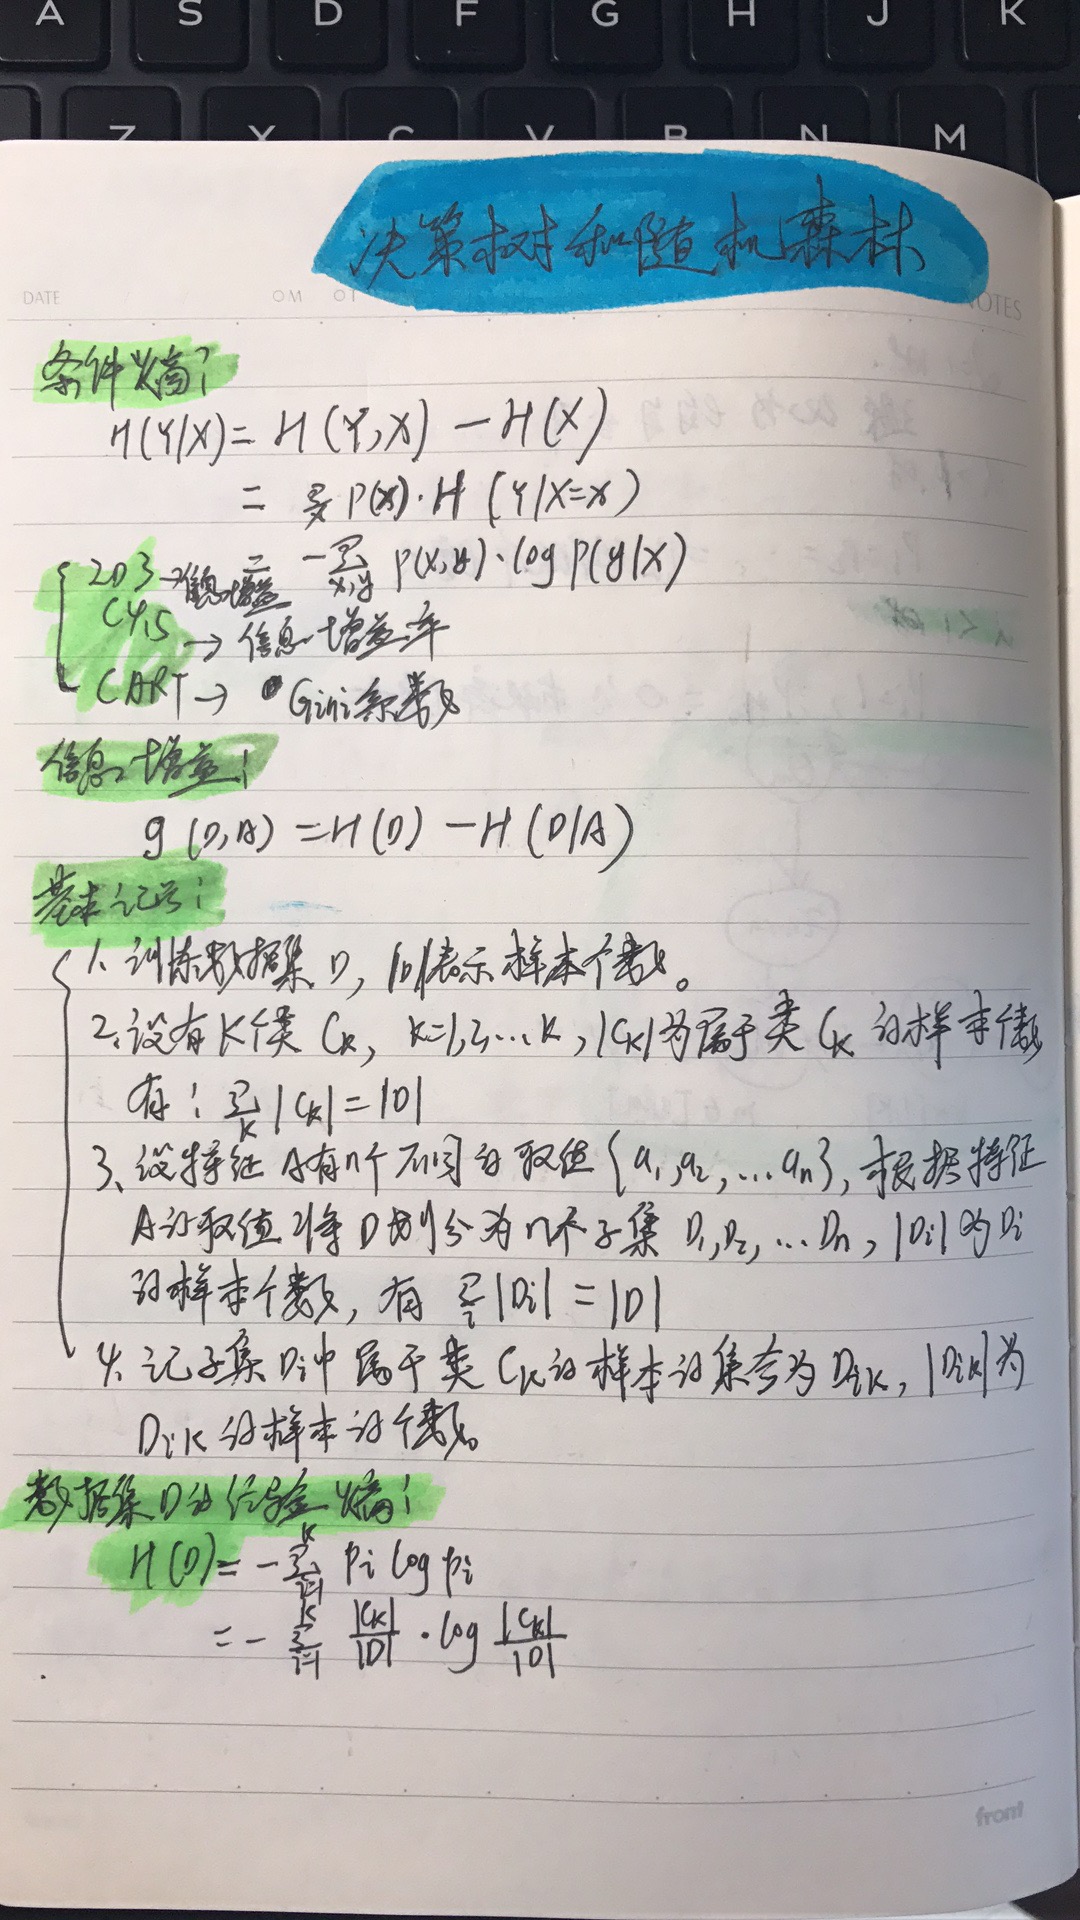 A S D F G H J K
Z X C V B N M
决策树和随机森林
DATE / / NOTES
条件熵:
H(Y|X) = H(Y,X) - H(X)
= Σₓ P(x)·H(Y|X=x)
= -Σ_{x,y} P(x,y)·log P(y|x)
ID3 → 信息增益
C4.5 → 信息增益率
CART → Gini系数
信息增益:
g(D,A) = H(D) - H(D|A)
基本记号:
1、训练数据集D,|D|表示样本个数。
2、设有K个类Ck,k=1,2,...k,|Ck|为属于类Ck的样本个数
有:Σ_k |Ck| = |D|
3、设特征A有n个不同的取值{a₁,a₂,...aₙ},根据特征
A的取值将D划分为n个子集D₁,D₂,...Dn,|Di|为Di
的样本个数,有Σ_i |Di| = |D|
4、记子集Di中属于类Ck的样本的集合为Dik,|Dik|为
Dik的样本的个数。
数据集D的经验熵:
H(D) = -Σ_{i=1}^{K} Pi log Pi
= -Σ_{i=1}^{K} |Ck|/|D| · log |Ck|/|D|
front